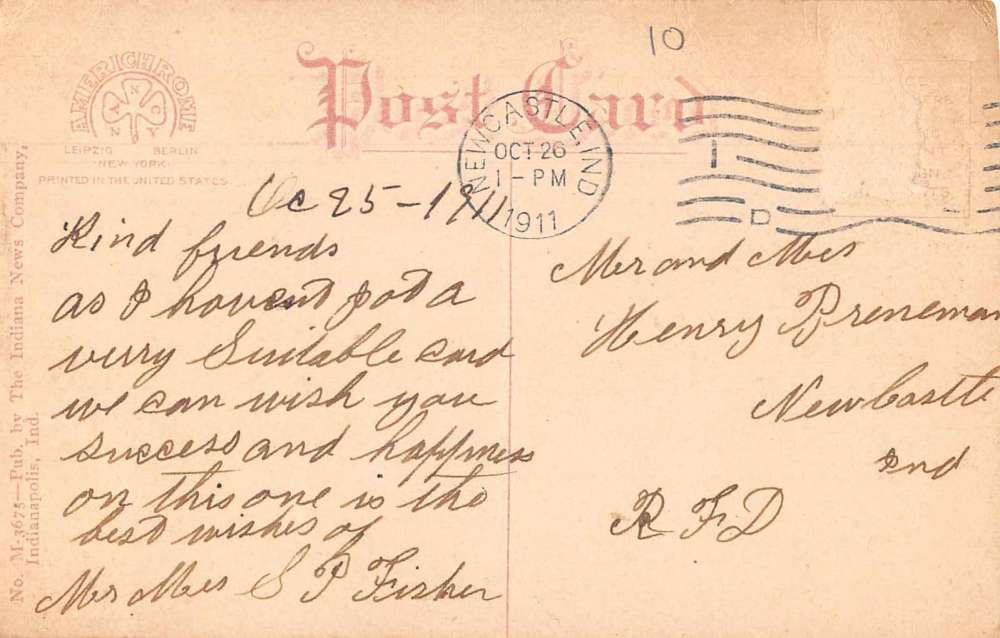 10
Post Card
AMERICHROME
N A N C Y
LEIPZIG BERLIN
NEW YORK
PRINTED IN THE UNITED STATES
NEWCASTLE, IND
OCT 26
1 - PM
1911
D
Oc 25 - 1911
Kind friends
as I havent got a
verry Suitable card
we can wish you
success and happiness
on this one is the
best wishes of
Mr Mrs S P Fisher
Mr and Mrs
Henry Breneman
New Castle
Ind
R F D
No. M-3675—Pub. by The Indiana News Company,
Indianapolis, Ind.